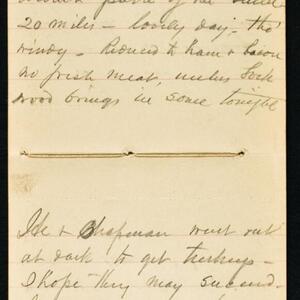 20 miles – lovely day, tho'
windy – Reduced to ham & bacon
no fresh meat, unless Lock
wood brings in some tonight
Ike & Chapman went out
at dark to get turkeys –
I hope they may succeed –